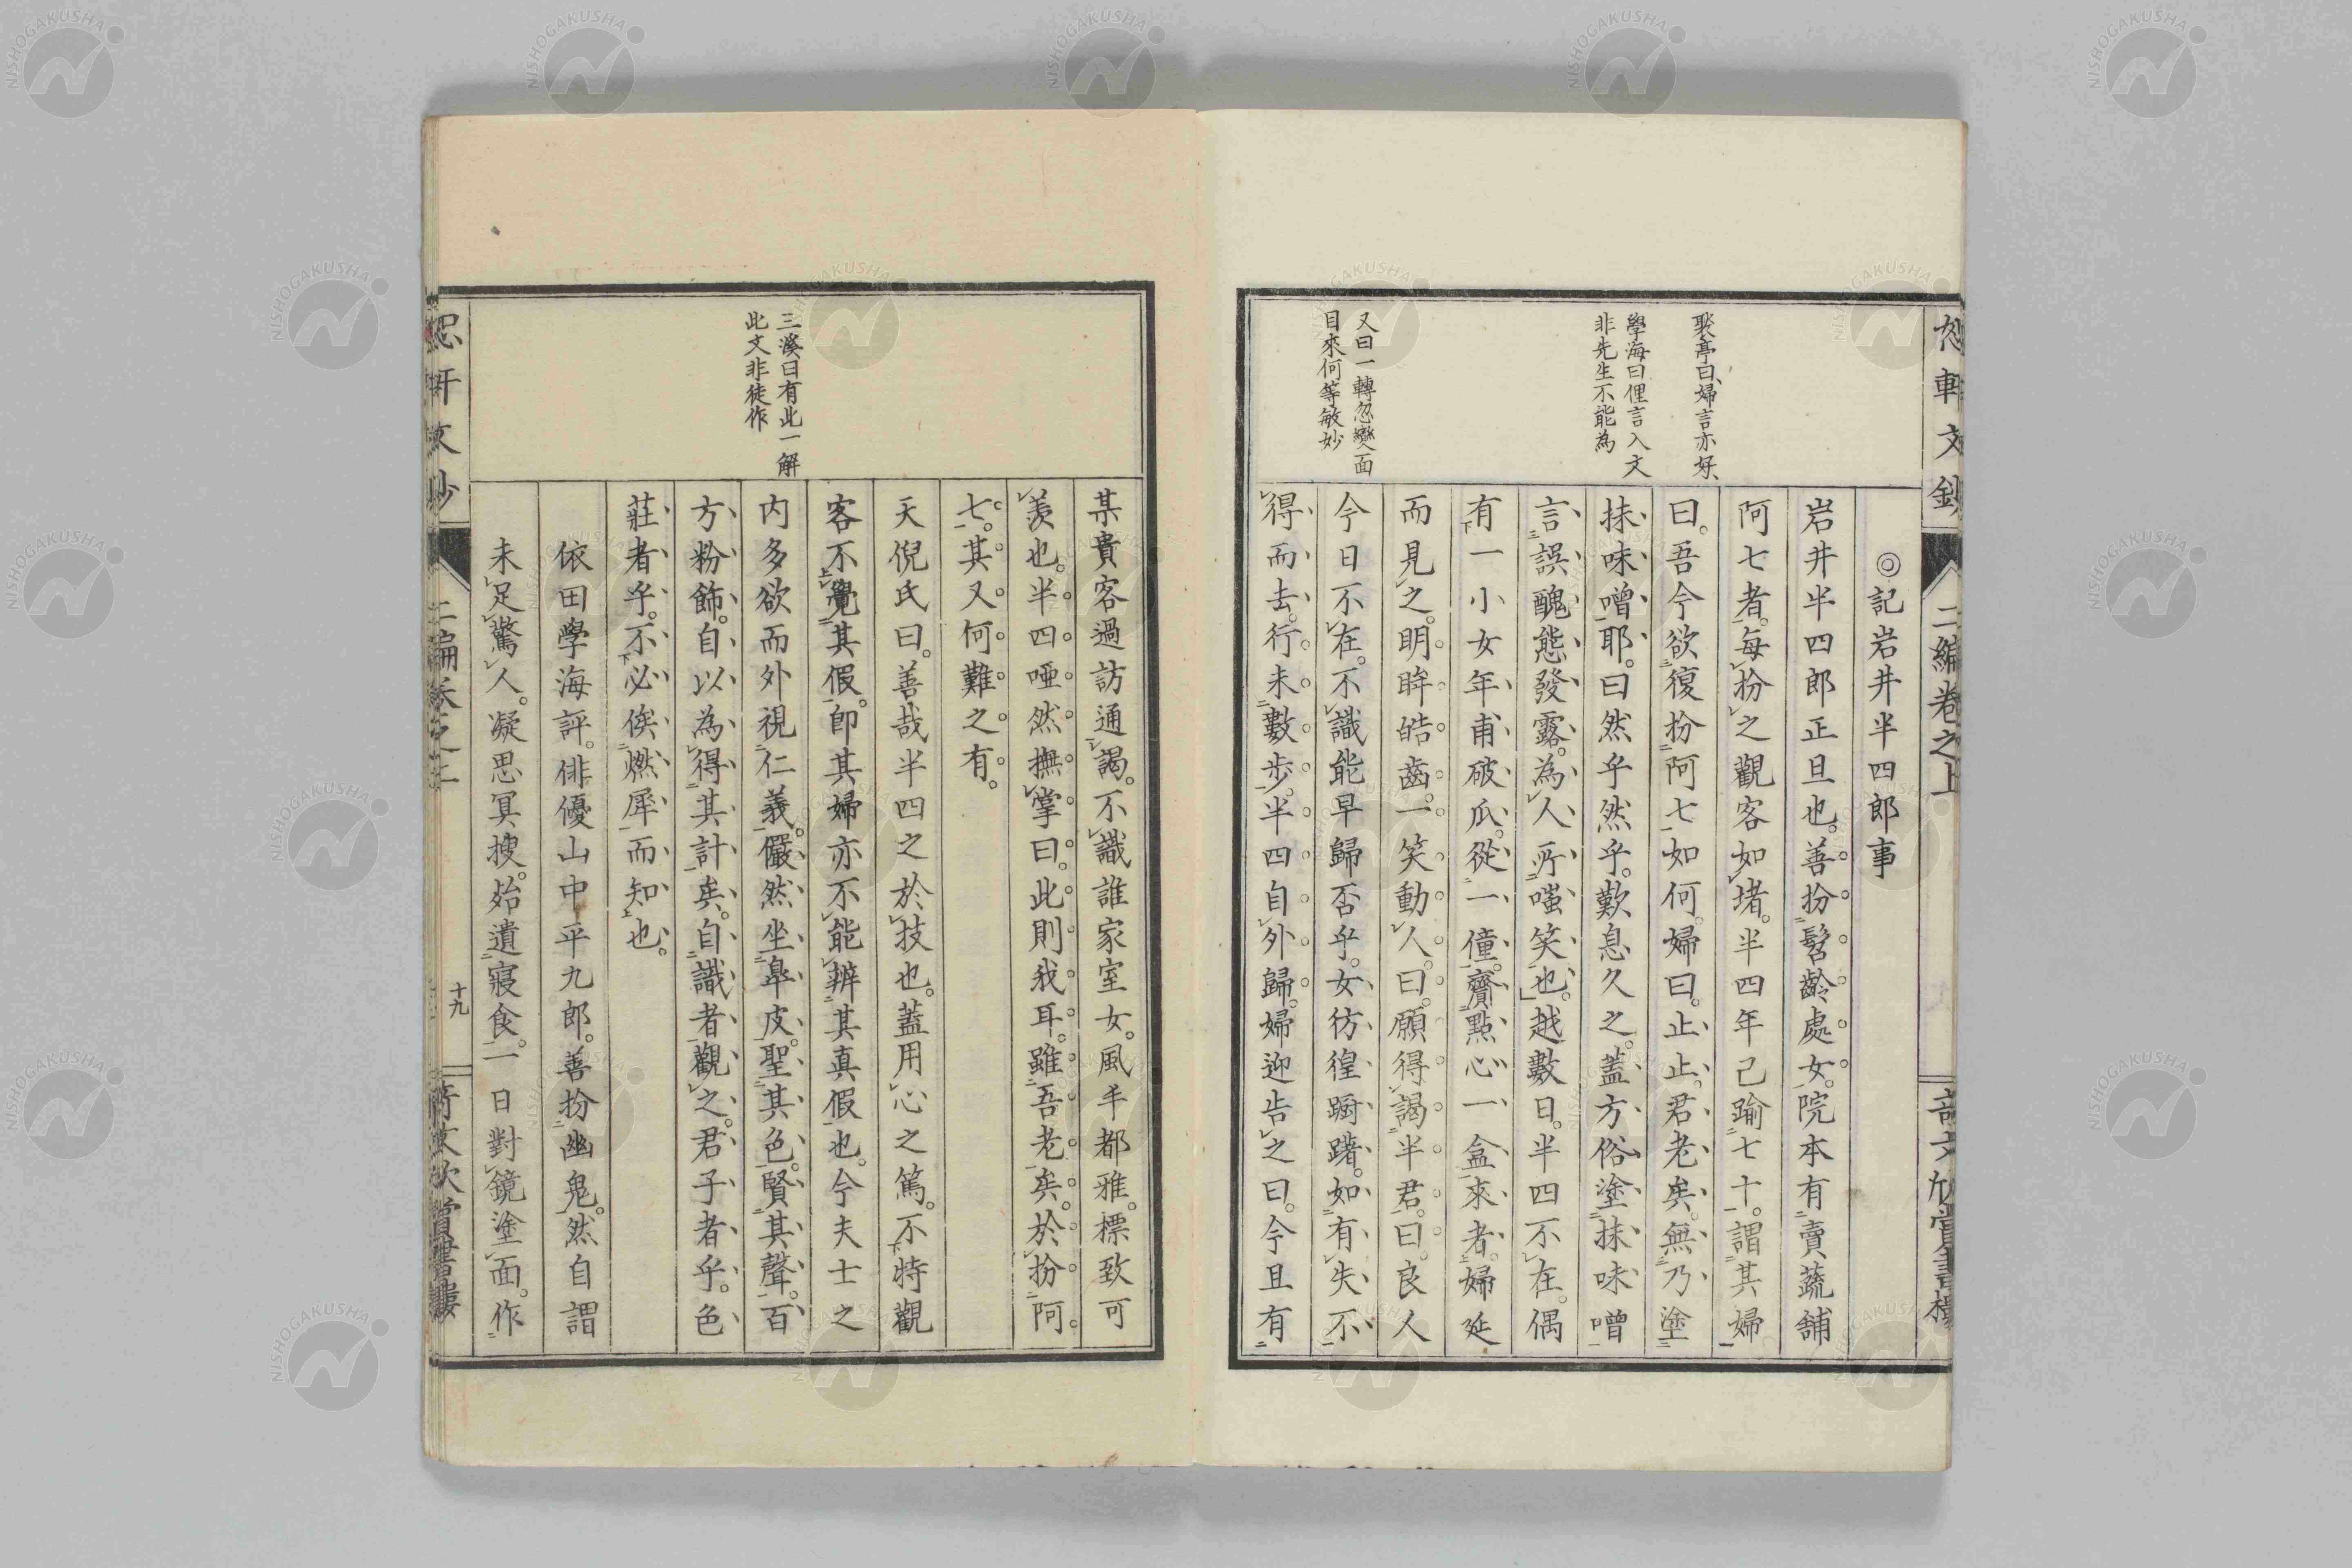 恕軒文鈔
二編卷之上
聚亭曰婦言亦好
學海曰俚言入文
非先生不能為
又曰一轉忽變面
目來何等敏妙
◎記岩井半四郎事
岩井半四郎正旦也。善扮髫齡處女。院本有賣蔬舖
阿七者。每扮之觀客如堵。半四年已踰七十。謂其婦
曰。吾今欲復扮阿七如何。婦曰。止止。君老矣。無乃塗
抹味噌耶。曰然乎然乎。歎息久之。蓋方俗塗抹味噌
言誤醜態發露。為人所嗤笑也。越數日。半四不在。偶
有一小女年甫破瓜。從一僮。齎點心一盒來者。婦延
而見之。明眸皓齒。一笑動人。曰。願得謁半君。曰。良人
今日不在。不識能早歸否乎。女彷徨躕躇。如有失不
得而去。行未數步。半四自外歸。婦迎告之曰。今且有
三溪曰有此一解
此文非徒作
某貴客過訪通謁。不識誰家室女。風丰都雅。標致可
羨也。半四啞然撫掌曰。此則我耳。雖吾老矣。於扮阿
七。其又何難之有。
天倪氏曰。善哉半四之於技也。蓋用心之篤。不特觀
客不覺其假。卽其婦亦不能辨其真假也。今夫士之
内多欲而外視仁義。儼然坐皐皮。聖其色。賢其聲。百
方粉飾。自以為得其計矣。自識者觀之。君子者乎。色
莊者乎。不必俟燃犀而知也。
依田學海評。俳優山中平九郎。善扮幽鬼。然自謂
未足驚人。凝思冥搜。殆遺寢食。一日對鏡塗面。作
恕軒文鈔
二編卷之上
十九